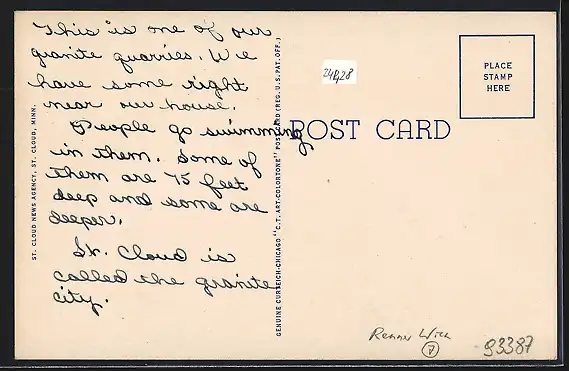 This is one of our
granite quarries. We
have some right
near our house.
People go swimming
in them. Some of
them are 75 feet
deep and some are
deeper.
St. Cloud is
called the granite
city.
ST. CLOUD NEWS AGENCY, ST. CLOUD, MINN.
GENUINE CURTEICH-CHICAGO "C.T. ART-COLORTONE" POST CARD (REG. U.S. PAT. OFF.)
POST CARD
PLACE
STAMP
HERE
7
93387